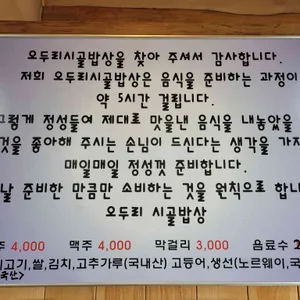 오두리시골밥상을 찾아 주셔서 감사합니다.
저희 오두리시골밥상은 음식을 준비하는 과정이
약 5시간 걸립니다.
그렇게 정성들여 제대로 맛을낸 음식을 내놓았을
것을 좋아해 주시는 손님이 드신다는 생각을 가지
매일매일 정성껏 준비합니다.
날 준비한 만큼만 소비하는 것을 원칙으로 합니
오두리 시골밥상
주 4,000 맥주 4,000 막걸리 3,000 음료수 2
고기,쌀,김치,고추가루(국내산) 고등어,생선(노르웨이,국